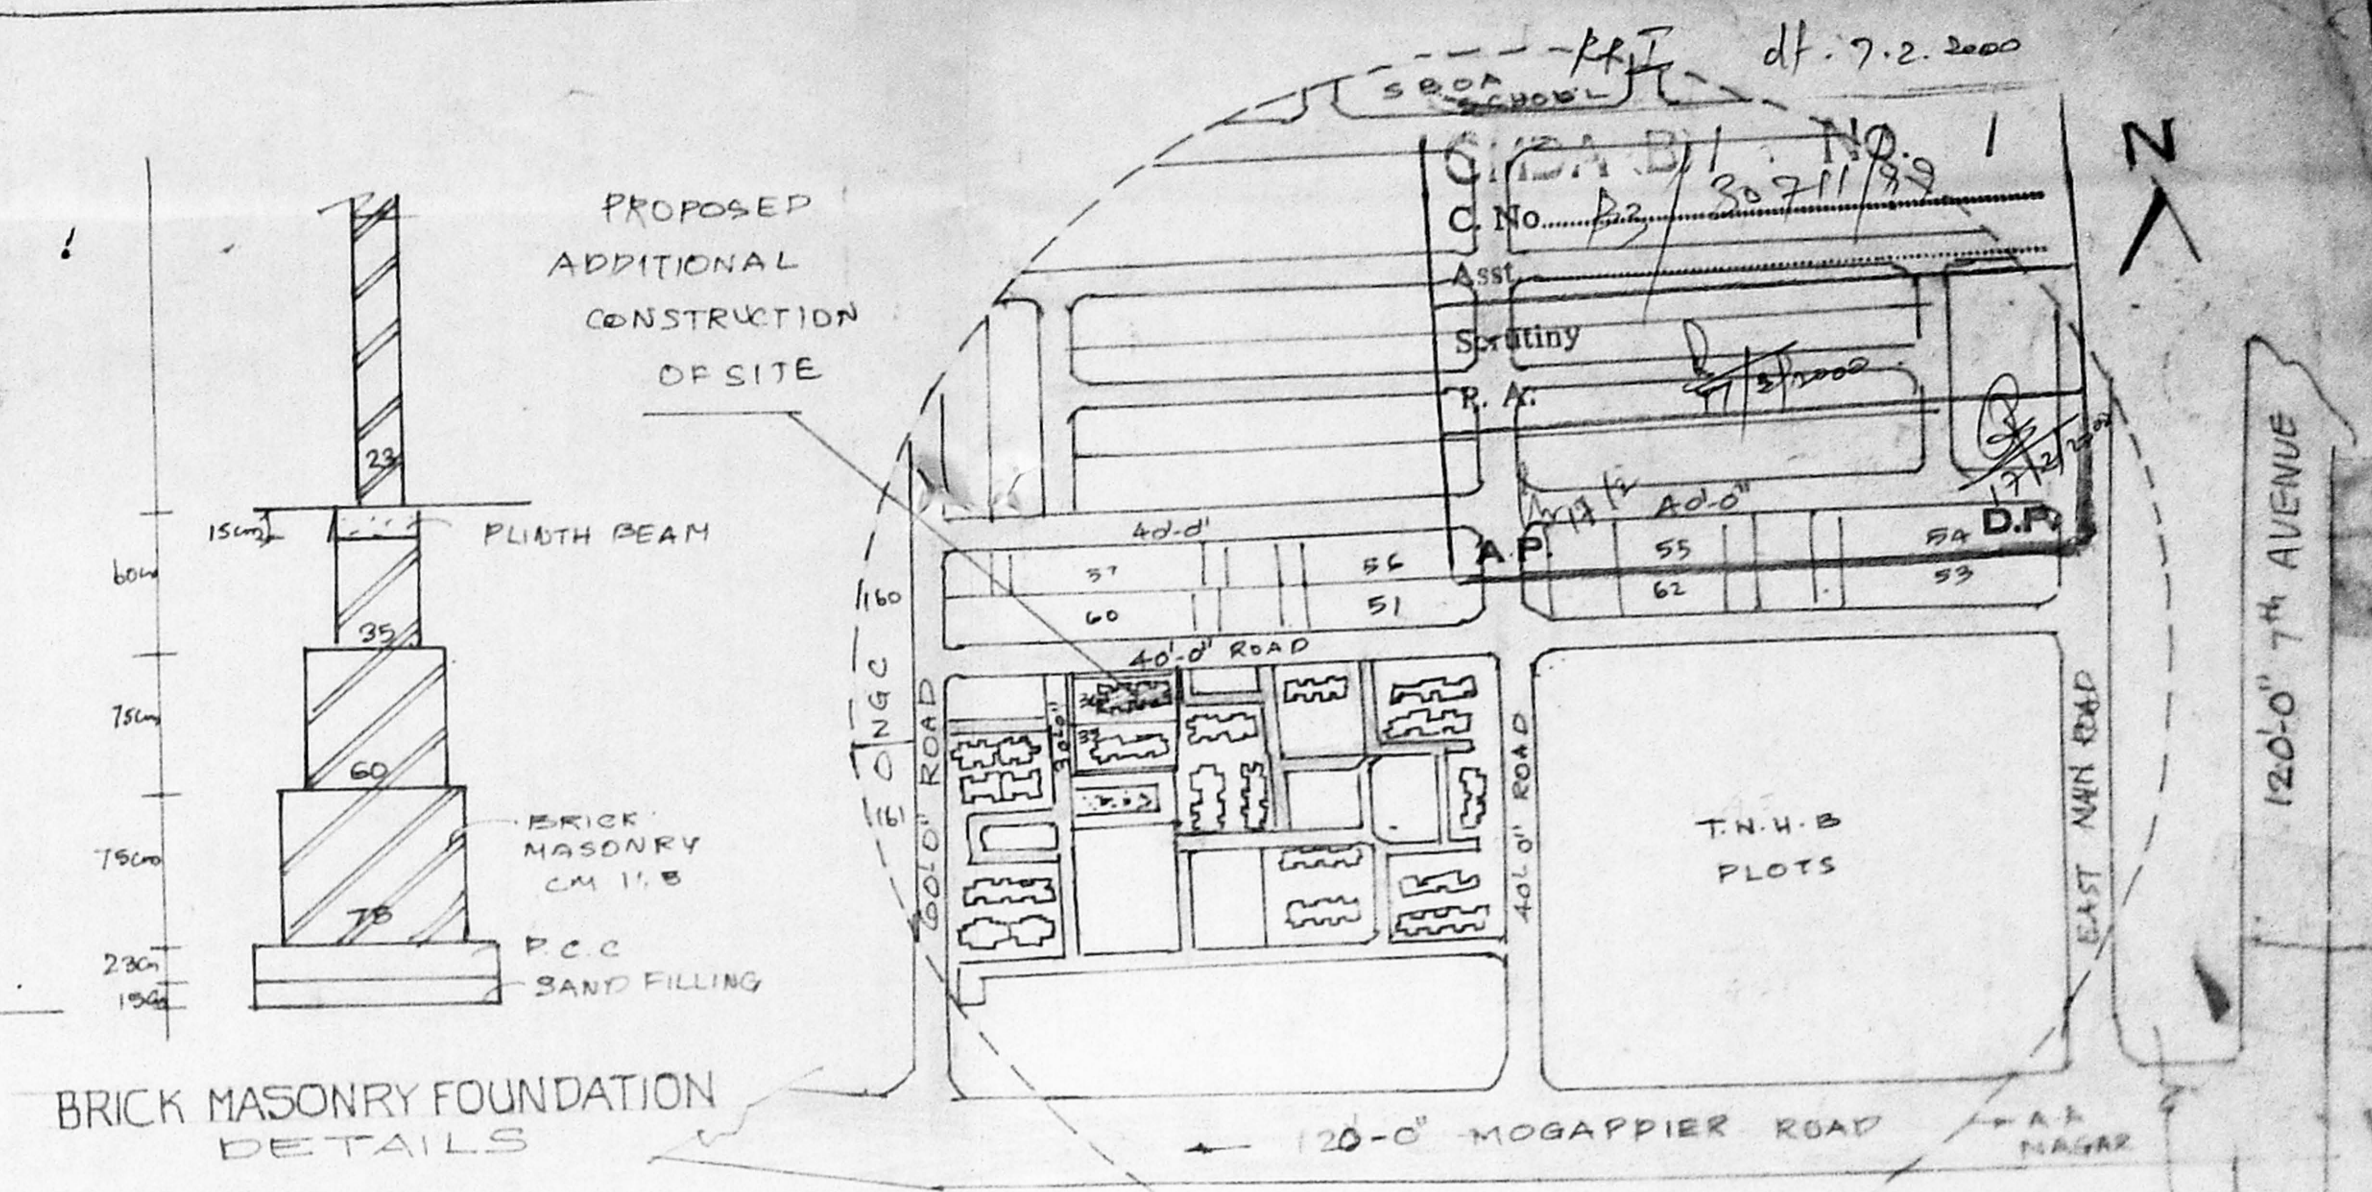 dt. 7.2.2000
SBOA
SCHOOL
CMDA (B) No. 1
N
C. No. B3/30711/99
Asst
Scrutiny
17/3/2000
R. A.
17/2/2000
17/2
A.P.
D.P.
PROPOSED
ADDITIONAL
CONSTRUCTION
OF SITE
23
15cm
PLINTH BEAM
60cm
35
75cm
60
75cm
BRICK
MASONRY
CM 1:8
75
23cm
P.C.C
15cm
SAND FILLING
BRICK MASONRY FOUNDATION
DETAILS
40'-0"
40'-0"
57
56
55
54
60
51
62
53
160
ONGC
161
40'-0" ROAD
30'-0"
37
60'-0" ROAD
40'-0" ROAD
T.N.H.B
PLOTS
EAST MAIN ROAD
120'-0" 7th AVENUE
120'-0" MOGAPPIER ROAD
A.A
NAGAR